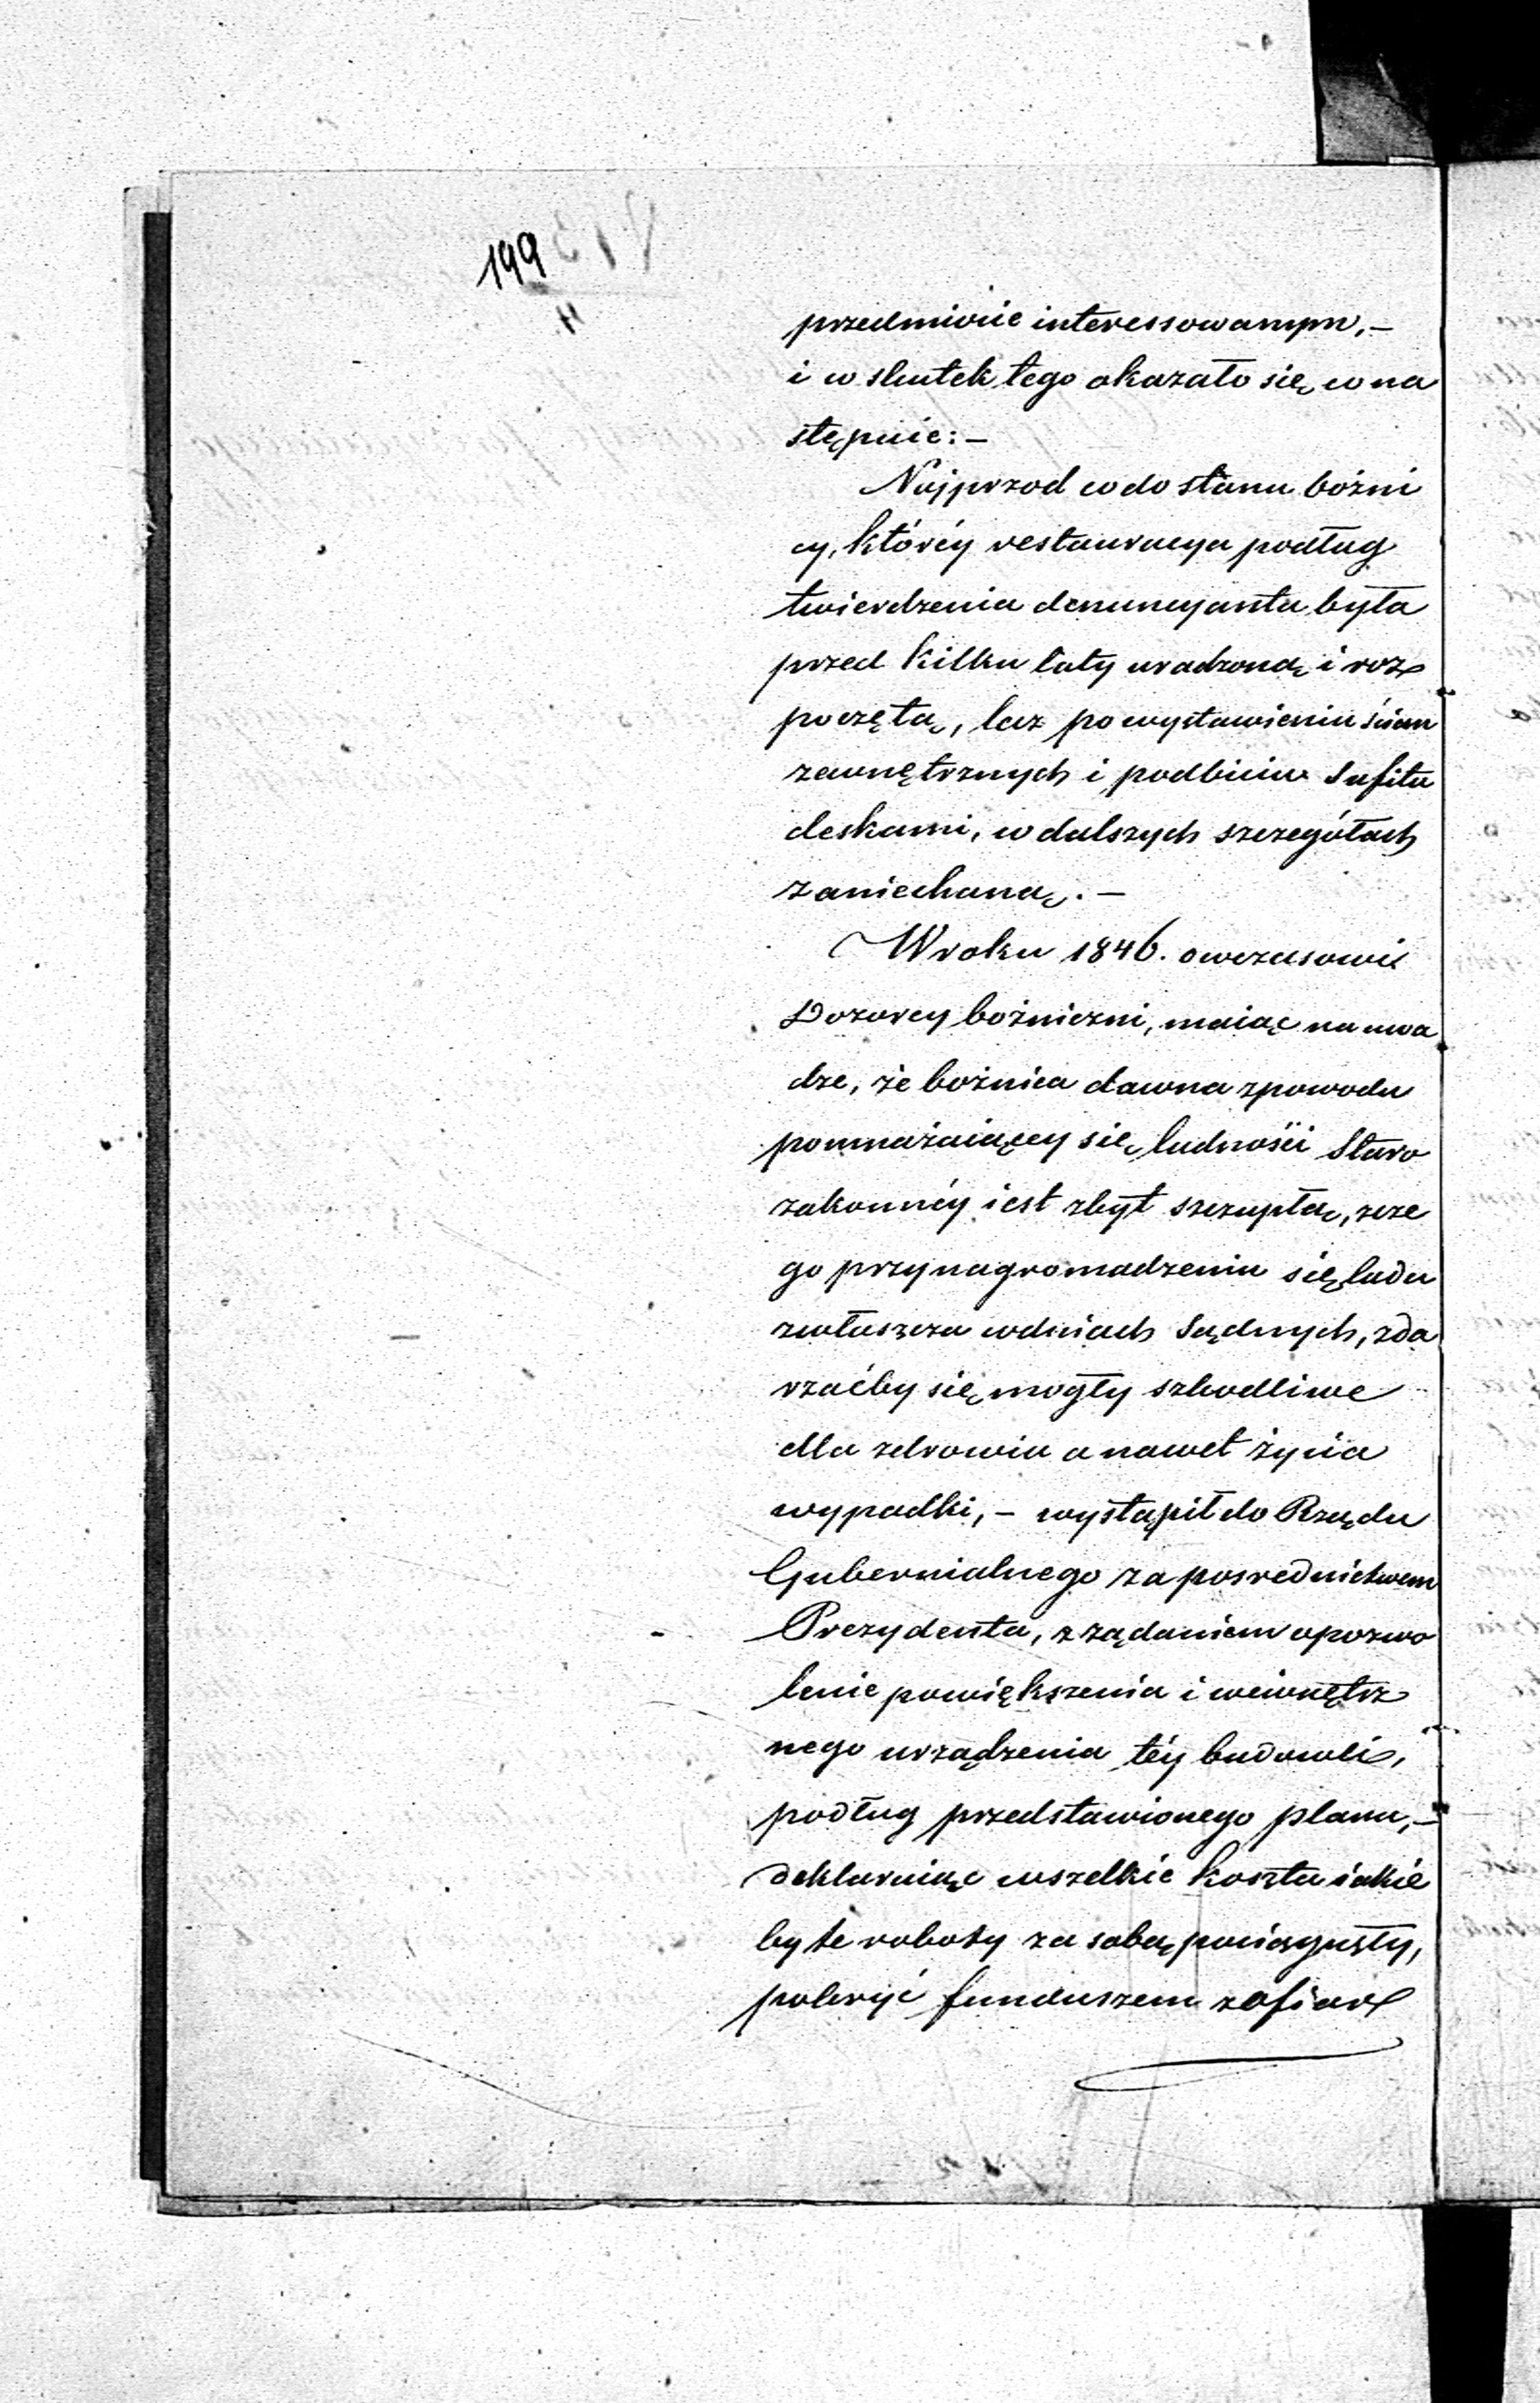 199
przedmiocie interessowanym,—
i w skutek tego okazało się co na
stępuie:—
Najprzod co do stanu bożni
cy, któréy restauracya podług
twierdzenia denuncyanta była
przed kilku laty uradzoną i roz
poczętą, lecz po wystawieniu ścian
zewnętrznych i podbiciu sufitu
deskami, w dalszych szczegółach
zaniechaną.—
W roku 1846. owczasowi
Dozorcy bożniczni, maiąc na uwa
dze, że bożnica dawna z powodu
pomnażaiącey się ludności Staro
zakonnéy iest zbyt szczupłą, z cze
go przy nagromadzeniu się ludu
zwłaszcza w dniach Sądnych, zda
rzaćby się mogły szkodliwe
dla zdrowia a nawet życia
wypadki,— wystąpił do Rządu
Gubernialnego za posrednictwem
Prezydenta, z żądaniem o pozwo
lenie powiększenia i wewnętrz
nego urządzenia téy budowli,
podług przedstawionego planu,—
deklaruiąc wszelkie koszta iakie
by te roboty za sobą pociągnęły,
pokryć funduszem z ofiar